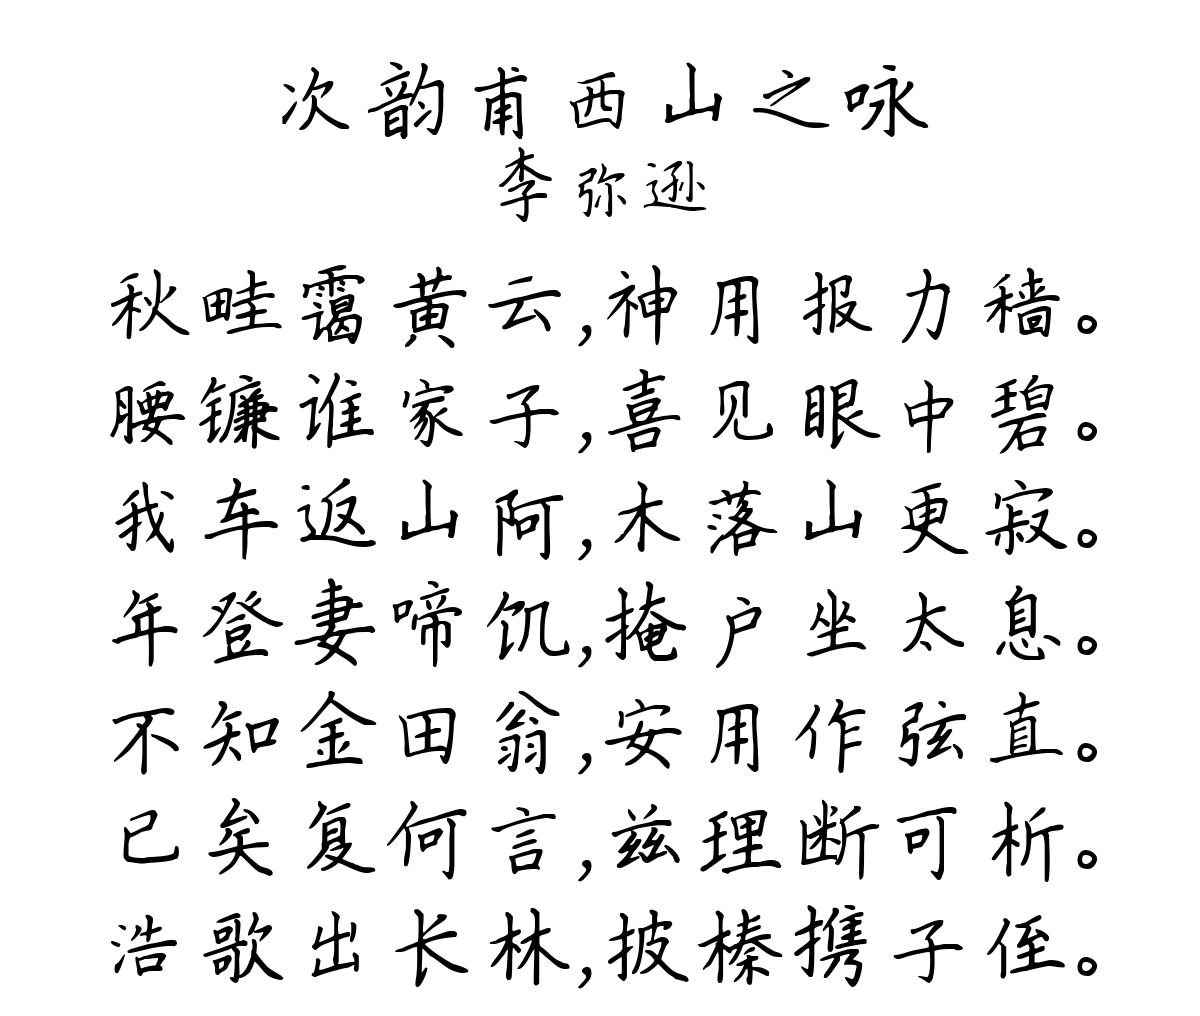 次韵甫西山之咏
李弥逊
秋畦霭黄云,神用报力穑。
腰镰谁家子,喜见眼中碧。
我车返山阿,木落山更寂。
年登妻啼饥,掩户坐太息。
不知金田翁,安用作弦直。
已矣复何言,兹理断可析。
浩歌出长林,披榛携子侄。